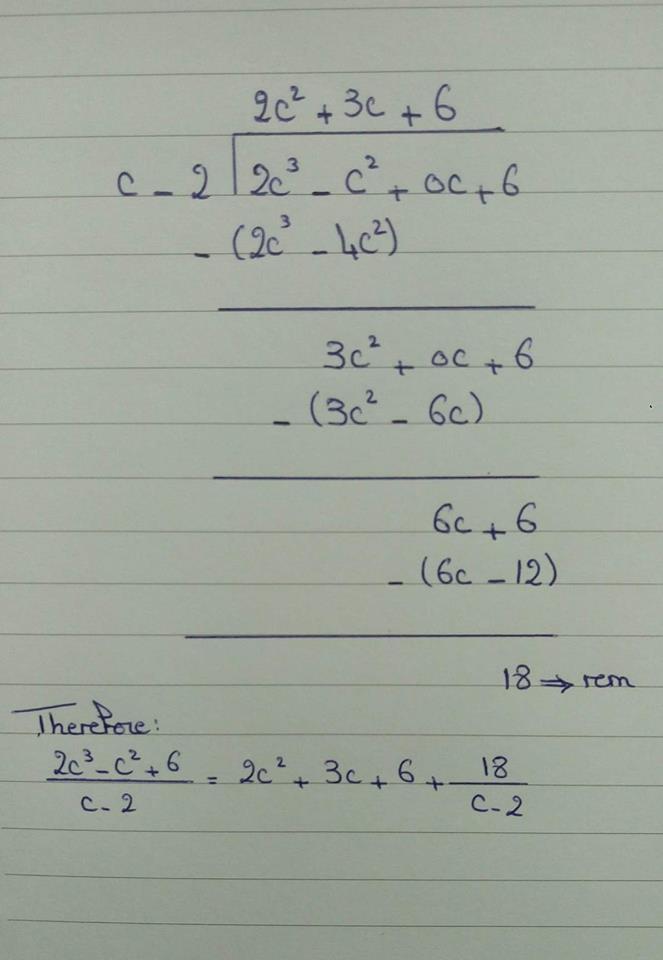 2c² + 3c + 6
c - 2 | 2c³ - c² + 0c + 6
- (2c³ - 4c²)
3c² + 0c + 6
- (3c² - 6c)
6c + 6
- (6c - 12)
18 ⇒ rem
Therefore:
2c³ - c² + 6 / c - 2 = 2c² + 3c + 6 + 18 / c - 2